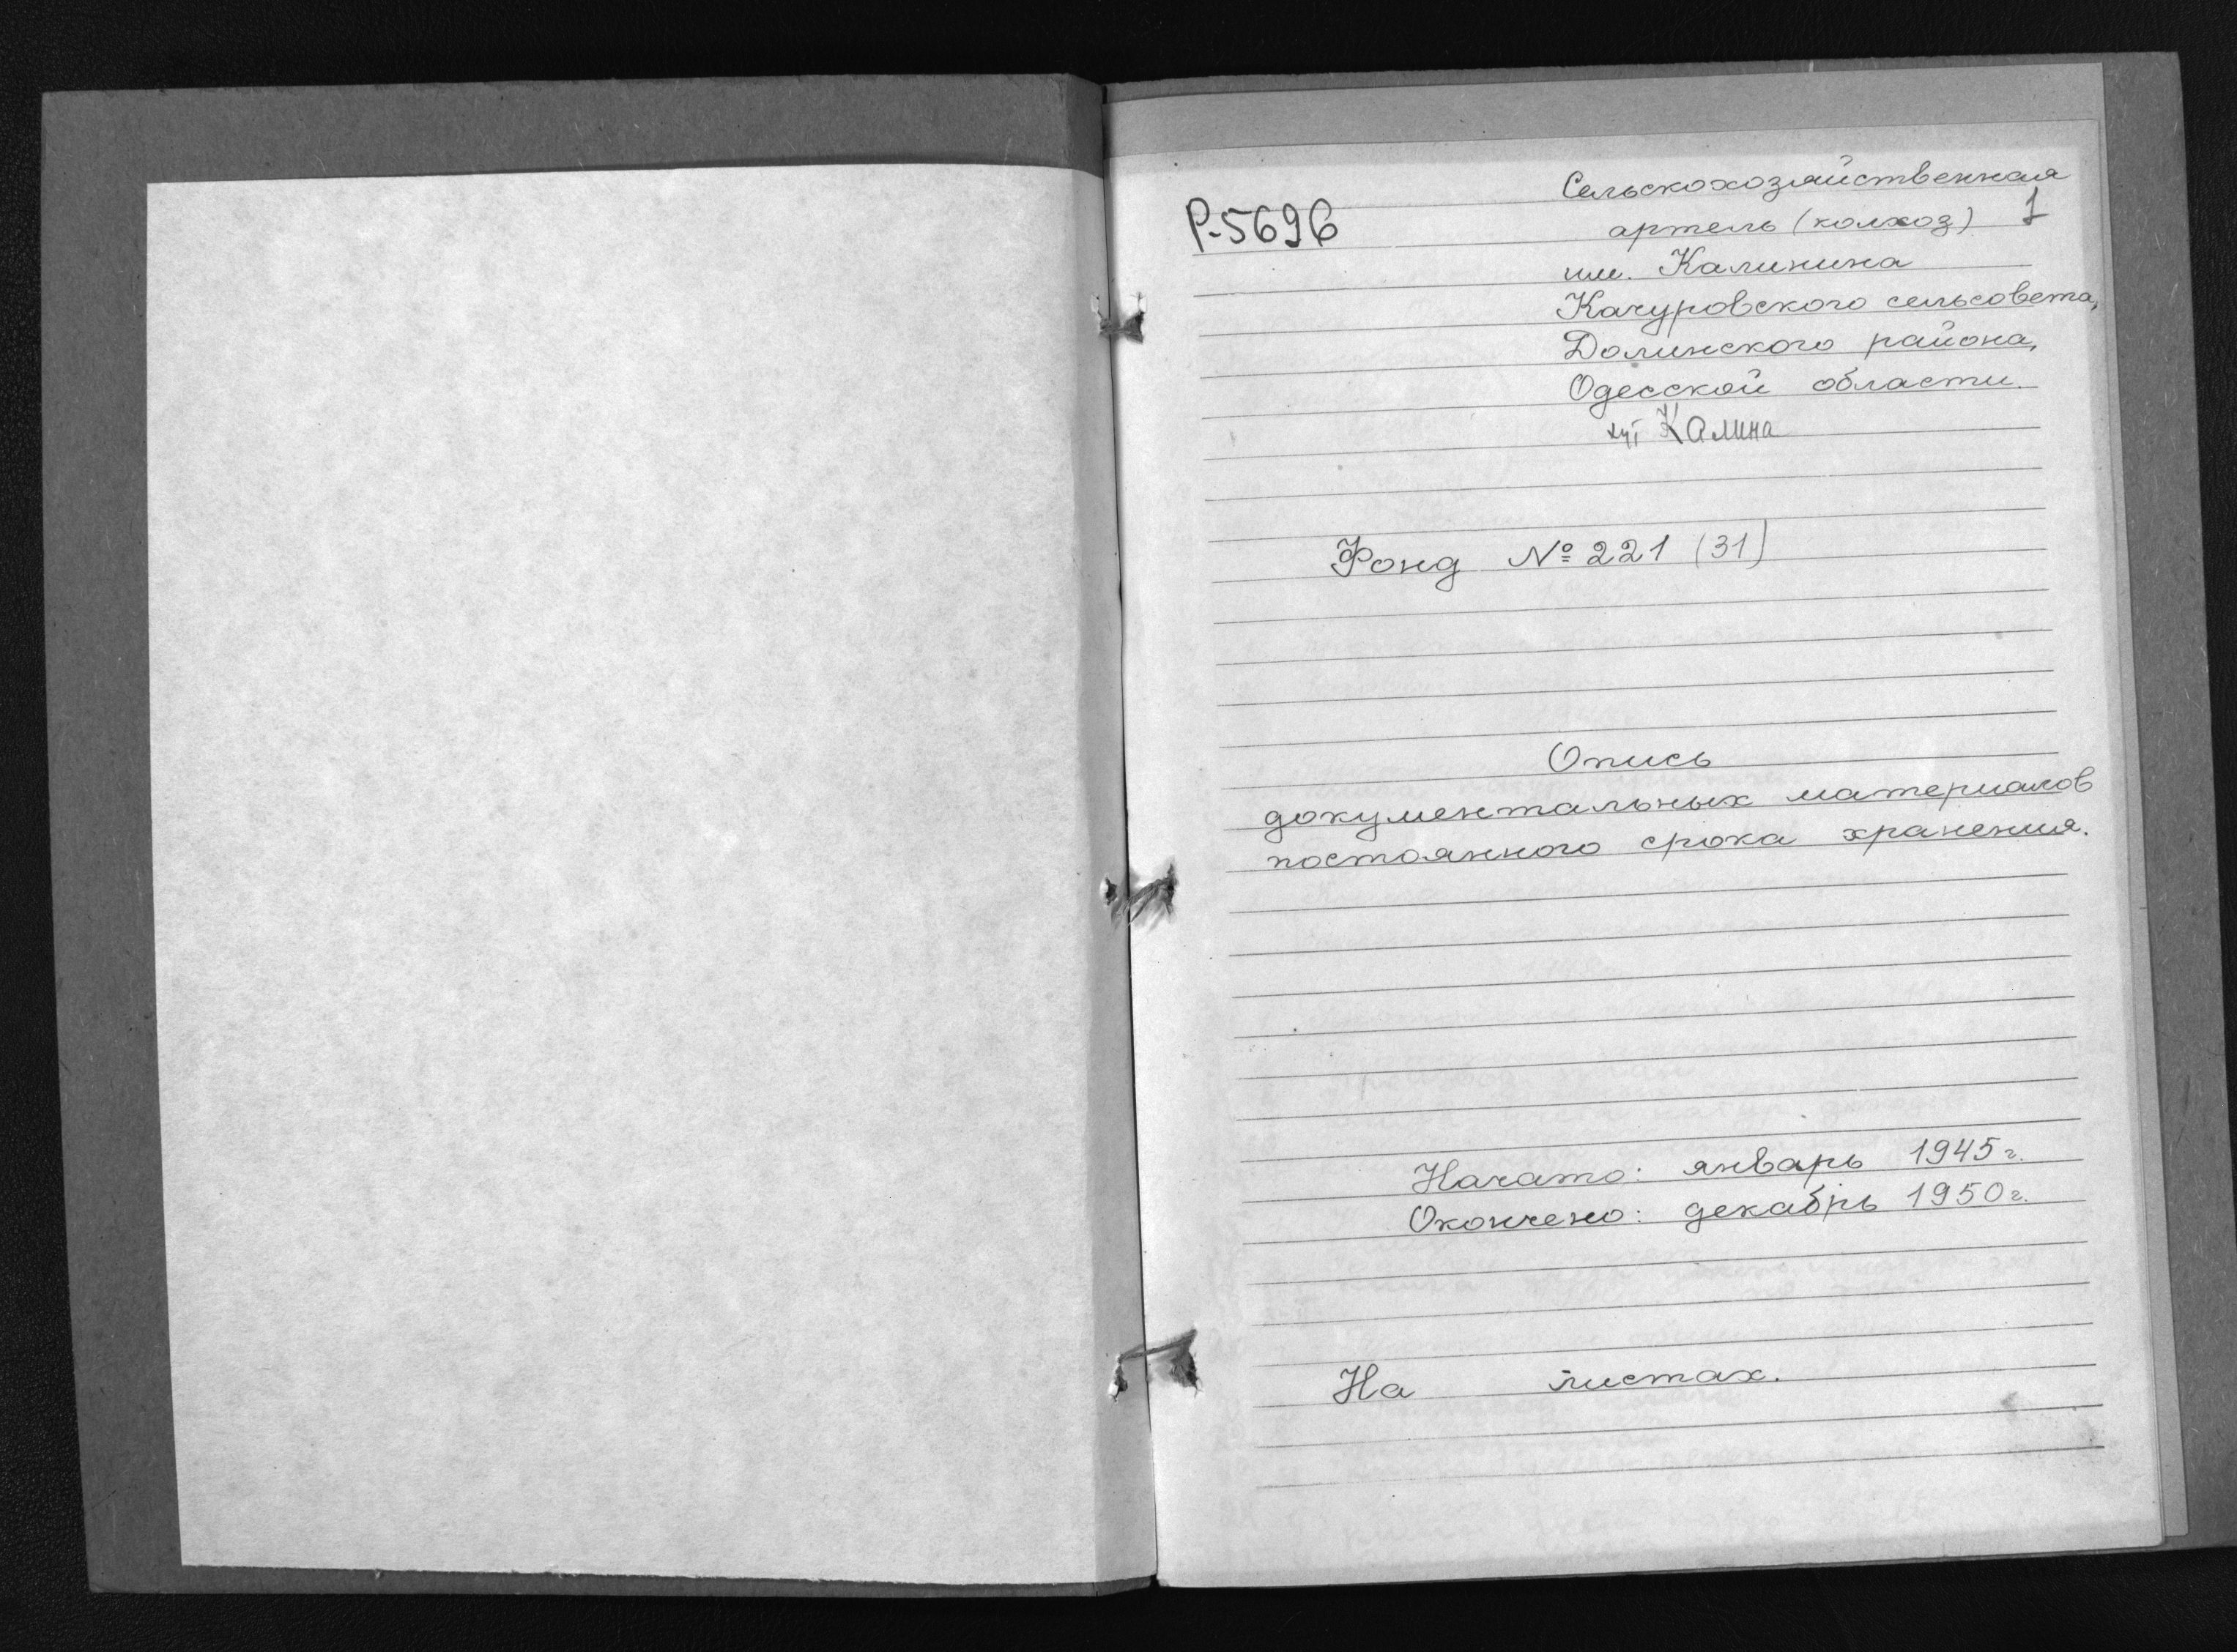 Р-5696
Сельскохозяйственная
артель (колхоз) 1
им. Калинина
Качуровского сельсовета,
Долинского района,
Одесской области.
хут Калина
Фонд № 221 (31)
Опись
документальных материалов
постоянного срока хранения.
Начато: январь 1945 г.
Окончено: декабрь 1950 г.
На листах.